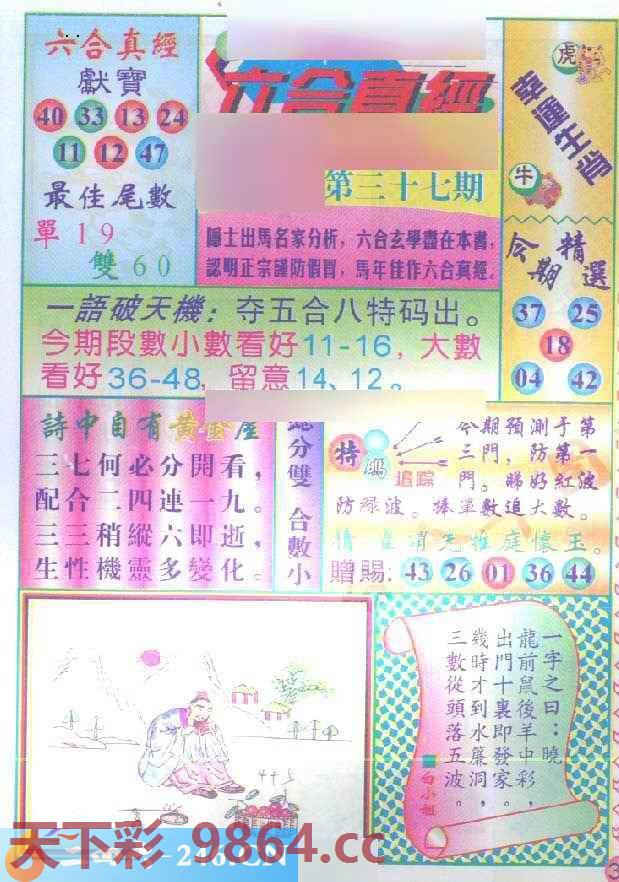 六合真經
獻寶
40 33 13 24
11 12 47
最佳尾數
單19
雙60
六合真經
第三十七期
隱士出馬名家分析，六合玄學盡在本書，
認明正宗謹防假冒，馬年佳作六合真經。
虎
幸運生肖
牛
今期精選
37 25
18
04 42
一語破天機：夺五合八特码出。
今期段數小數看好11-16，大數
看好36-48，留意14、12。
詩中自有黃金屋
三七何必分開看，
配合二四連一九。
三三稍縱六即逝，
生性機靈多變化。
總分雙 合數小
特碼
追踪
今期預測于第
三門，防第一
門。睇好紅波
防綠波。捧單數追大數。
贈賜：43 26 01 36 44
一字之曰：曉
龍前鼠後羊中彩，
出門十裏即發家。
幾時才到水簾洞，
三數從頭落五波。
白小姐
4+5
天下彩 9864.cc
246.CN
3